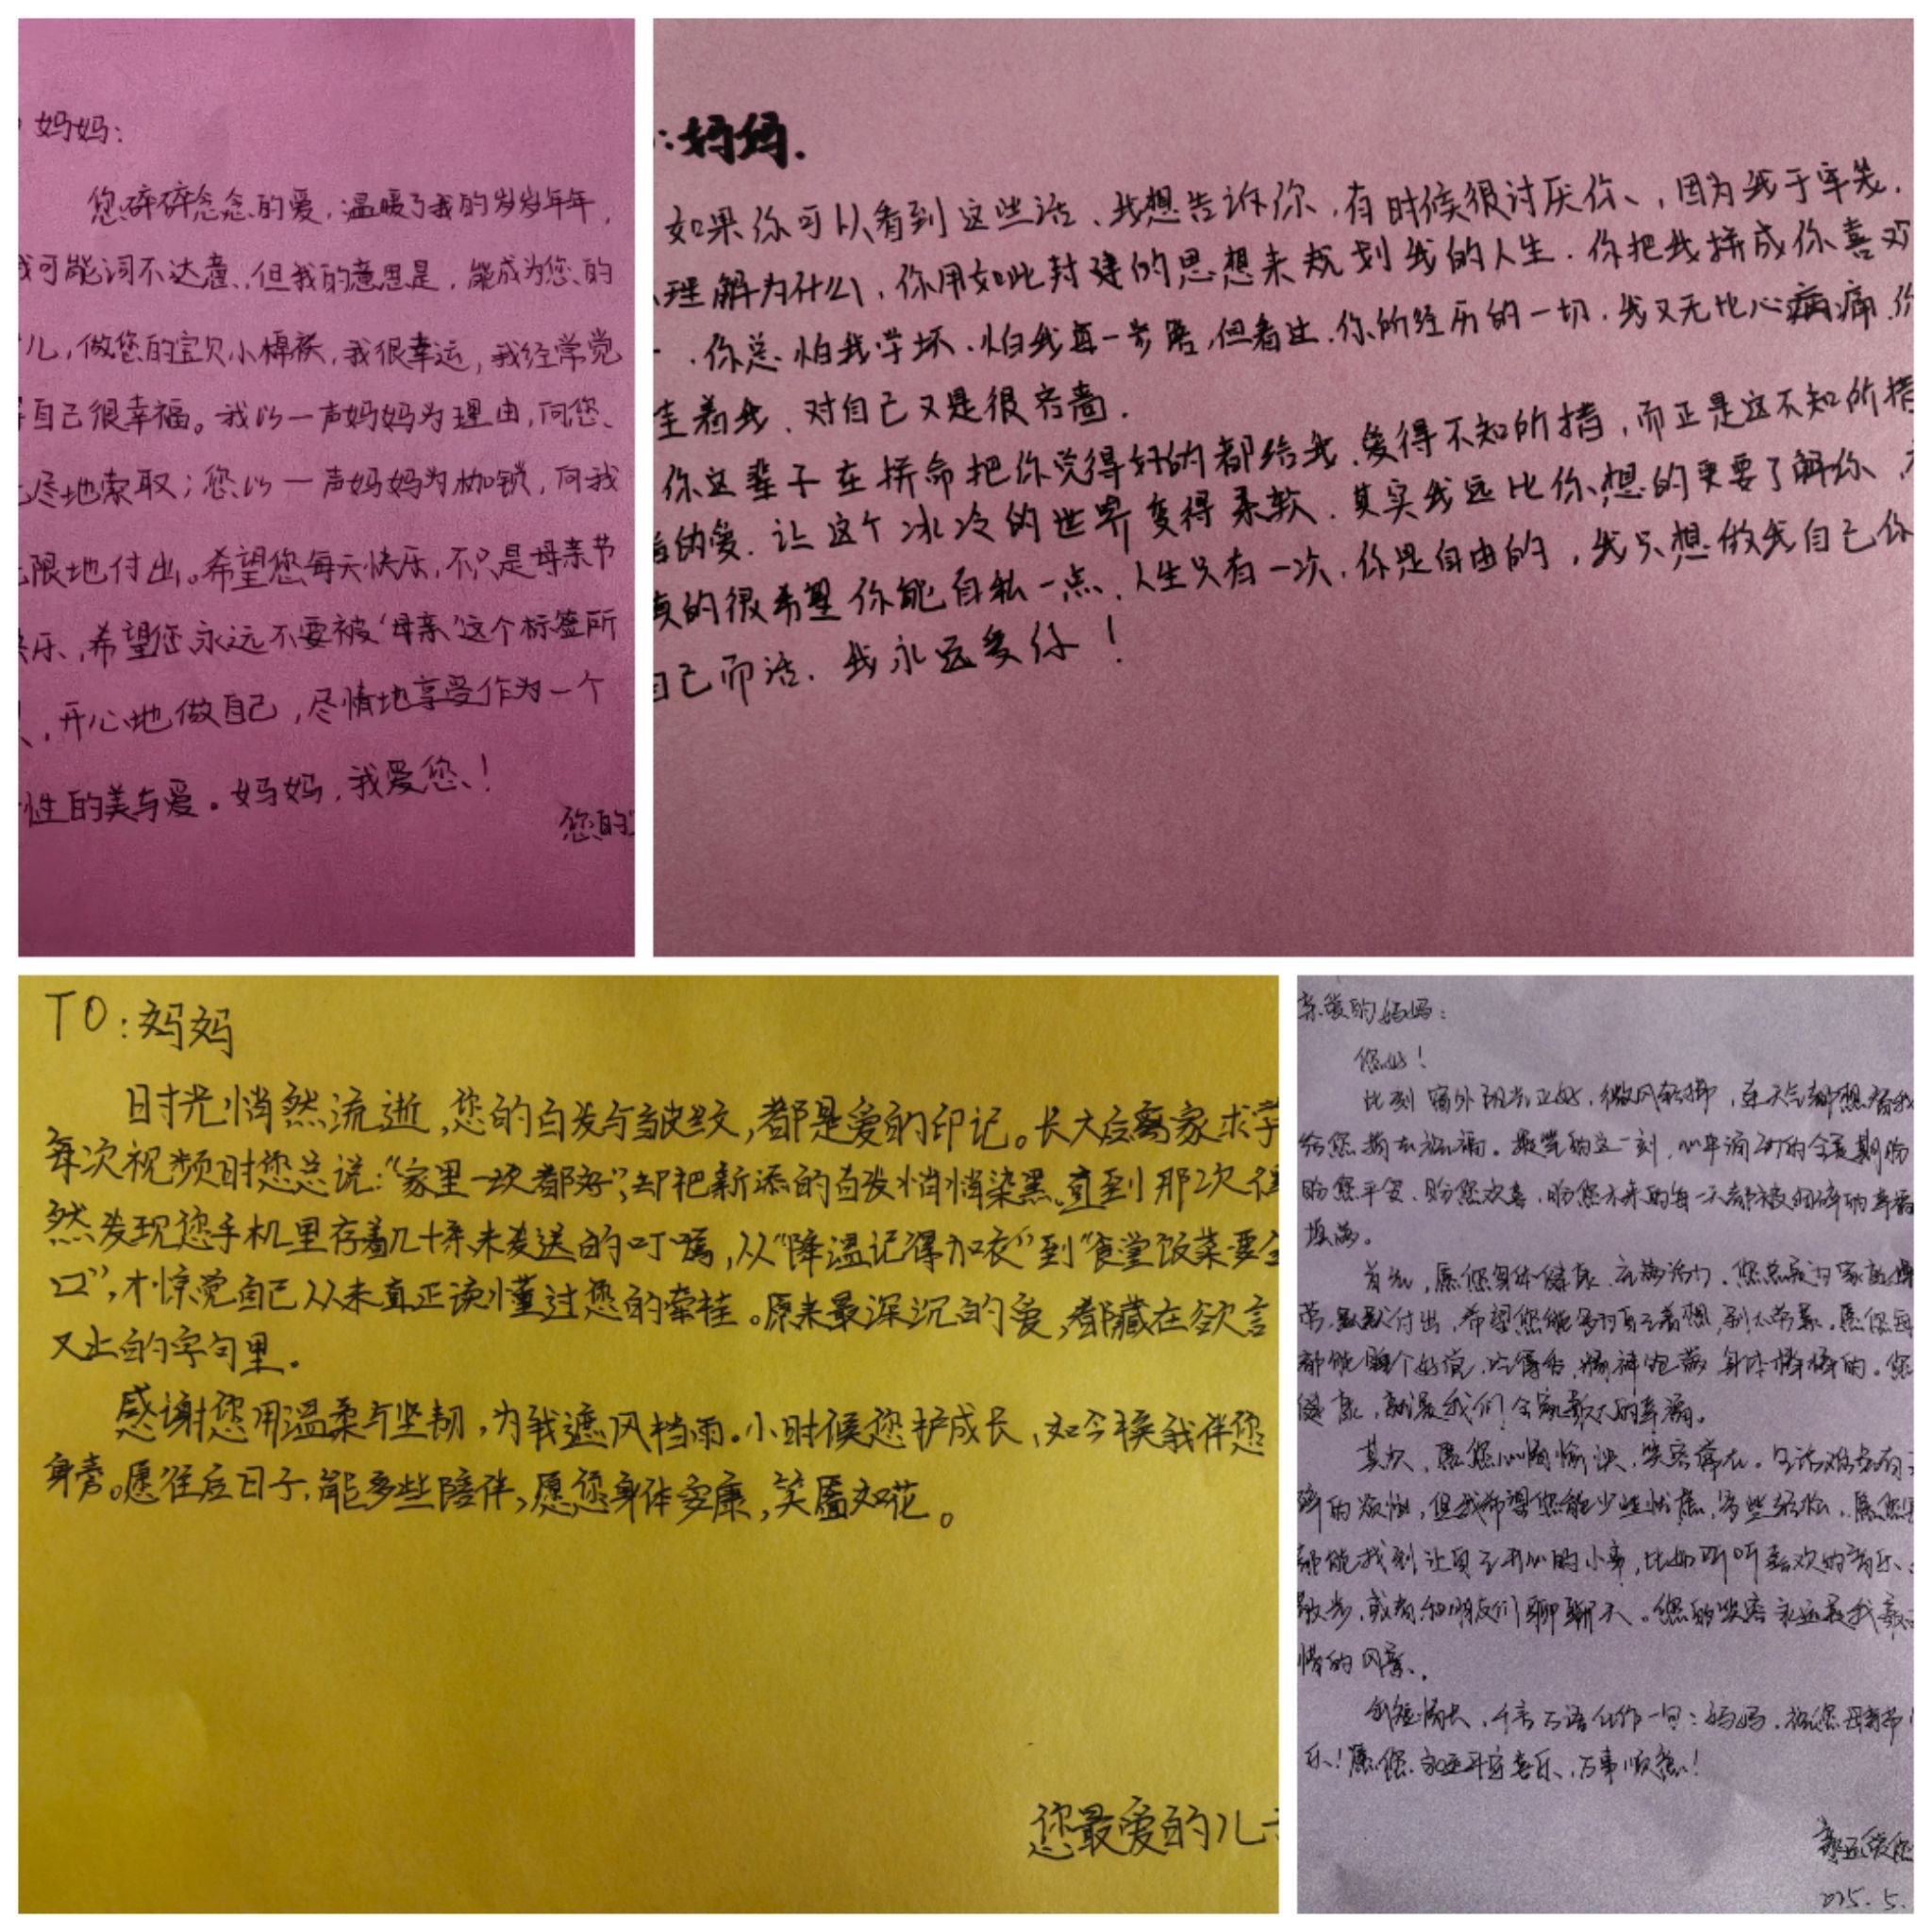 妈妈：
您碎碎念念的爱，温暖了我的岁岁年年，
我可能词不达意，但我的意思是，能成为您的
儿，做您的宝贝小棉袄，我很幸运，我经常觉
自己很幸福。我以一声妈妈为理由，向您
尽地索取；您以一声妈妈为枷锁，向我
限地付出。希望您每天快乐，不只是母亲节
乐，希望您永远不要被‘母亲’这个标签所
，开心地做自己，尽情地享受作为一个
性的美与爱。妈妈，我爱您！
您的
：妈妈.
如果你可以看到这些话、我想告诉你，有时候很讨厌你、，因为我于牢笼.
理解为什么，你用如此封建的思想来规划我的人生. 你把我拼成你喜欢
. 你总怕我学坏、怕我每一步路，但看过、你所经历的一切、我又无比心病痛. 你
着我、对自己又是很吝啬.
你这辈子在拼命把你觉得好的都给我、爱得不知所措，而正是这不知所措
的爱. 让这个冰冷的世界变得柔软. 其实我远比你想的更要了解你
真的很希望你能自私一点、人生只有一次，你是自由的，我只想做我自己你
自己而活. 我永远爱你！
TO：妈妈
时光悄然流逝，您的白发与皱纹，都是爱的印记。长大后离家求学
每次视频时您总说：“家里一次都好”，却把新添的白发悄悄染黑。直到那次
然发现您手机里存着几十条未发送的叮嘱，从“降温记得加衣”到“食堂饭菜要
口”，才惊觉自己从未真正读懂过您的牵挂。原来最深沉的爱，都藏在欲言
又止的字句里。
感谢您用温柔与坚韧，为我遮风档雨。小时候您护成长，如今换我伴您
身旁。愿往后日子，能多些陪伴，愿您身体安康，笑靥如花。
您最爱的儿
亲爱的妈妈：
您好！
此刻窗外阳光正好，微风轻拂，连天气都想替我
给您捎去祝福。提笔的这一刻，心中涌动的全是期盼
盼您平安、盼您欢喜，盼您未来的每一天都被细碎的幸福
填满。
首先，愿您身体健康、充满活力。您总是为家
劳，默默付出，希望您能多为自己着想，别太劳累。愿您
都能睡个好觉，吃得香，精神饱满，身体棒棒的。您
健康，就是我们全家最大的幸福。
其次，愿您心情愉快，笑容常在。生活难免有
碎的烦恼，但我希望您能少些忧虑，多些轻松。愿您
都能找到让自己开心的小事，比如听听喜欢的音乐、
散步，或者和朋友们聊聊天。您的笑容永远是我最
惜的风景。
纸短情长，千言万语化作一句：妈妈，祝您母亲节
乐！愿您永远平安喜乐、万事顺意！
您
2025.5.